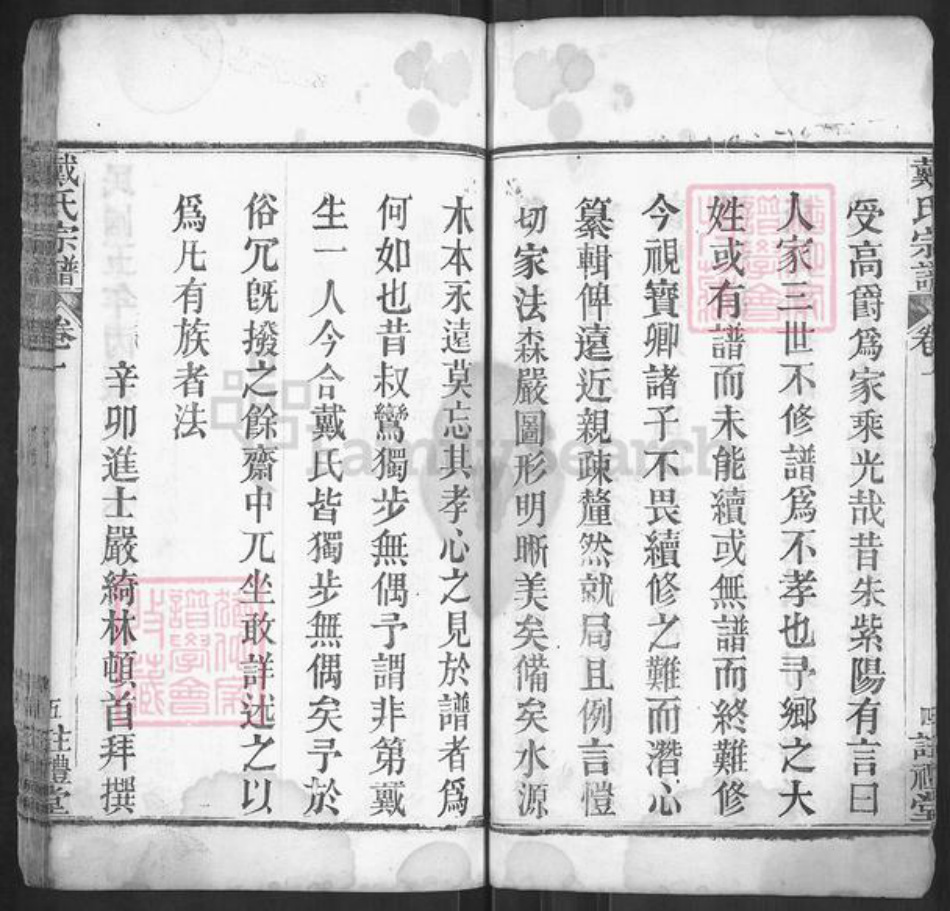 受高爵爲家乘光哉昔朱紫陽有言曰
人家三世不修譜爲不孝也予鄉之大
姓或有譜而未能續或無譜而終難修
今視寶卿諸子不畏續修之難而潛心
纂輯俾遠近親疎釐然就局且例言愷
切家法森嚴圖形明晰美矣備矣水源
木本永遠莫忘其孝心之見於譜者爲
何如也昔叔鸞獨步無偶予謂非第戴
生一人今合戴氏皆獨步無偶矣予於
俗冗旣撥之餘齋中兀坐敢詳述之以
爲凡有族者法
辛卯進士嚴綺林頓首拜撰
戴氏宗譜
卷一
五
註禮堂
戴氏宗譜
卷一
四
註禮堂
FamilySearch